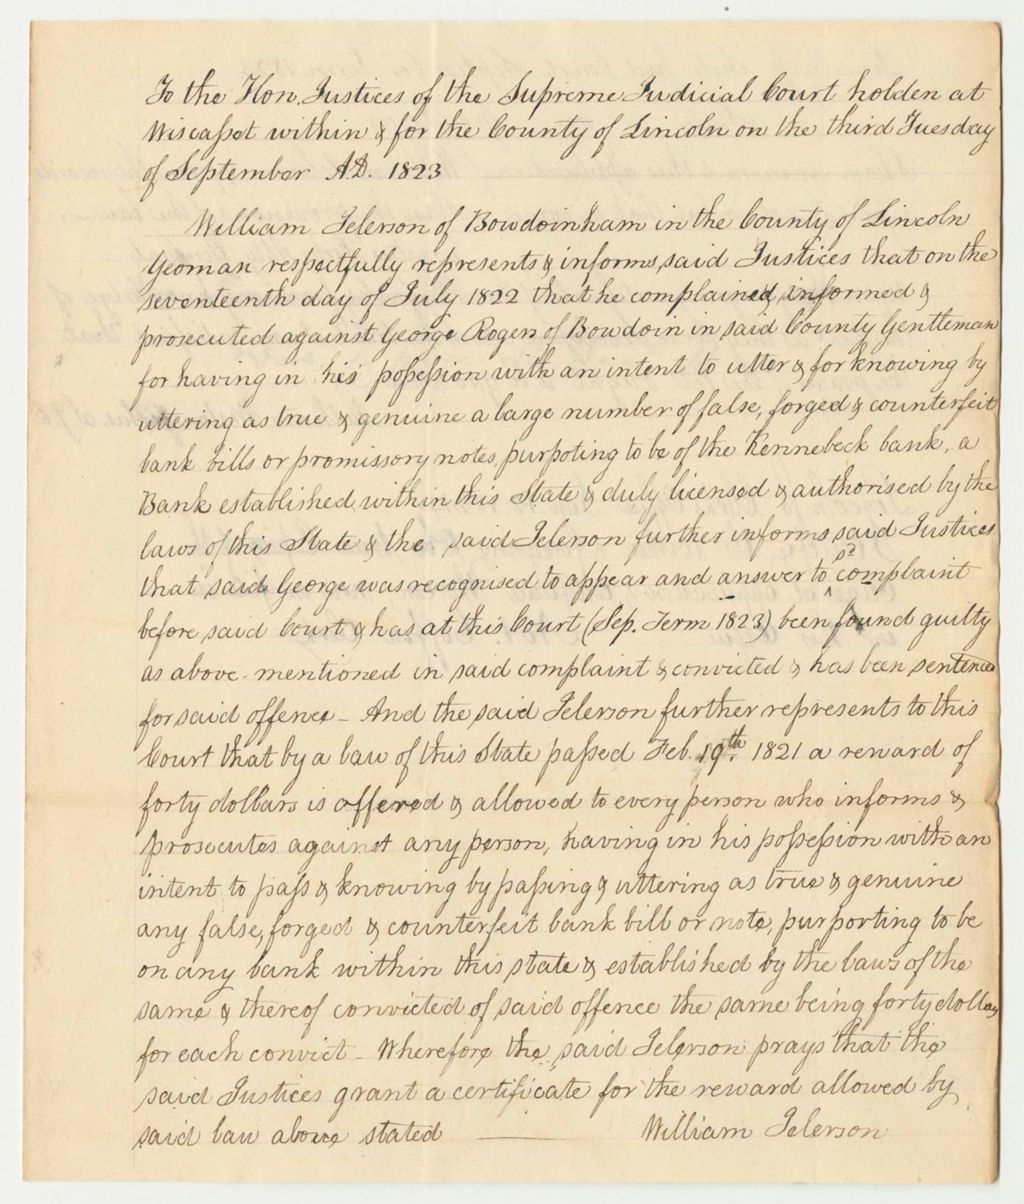 To the Hon. Justices of the Supreme Judicial Court holden at
Wiscasset within & for the County of Lincoln on the third Tuesday
of September A.D. 1823
William Jelerson of Bowdoinham in the County of Lincoln
Yeoman respectfully represents & informs, said Justices that on the
seventeenth day of July 1822 that he complained, informed &
prosecuted against George Rogers of Bowdoin in said County Gentleman
for having in his possession with an intent to utter & for knowing by
uttering as true & genuine a large number of false, forged & counterfeit
bank bills or promissory notes, purpoting to be of the Kennebeck bank, a
Bank established within this State & duly licensed & authorised by the
laws of this State & the said Jelerson further informs said Justices
that said George was recognised to appear and answer to sd complaint
before said Court & has at this Court (Sep. Term 1823) been found guilty
as above mentioned in said complaint & convicted & has been sentenced
for said offence - And the said Jelerson further represents to this
Court that by a law of this State passed Feb. 19th. 1821 a reward of
forty dollars is offered & allowed to every person who informs &
prosecutes against any person, having in his possession with an
intent to pass & knowing by passing & uttering as true & genuine
any false, forged & counterfeit bank bill or note, purporting to be
on any bank within this state & established by the laws of the
same & thereof convicted of said offence the same being forty dollars
for each convict - Wherefore the said Jelerson prays that the
said Justices grant a certificate for the reward allowed by
said law above stated ——— William Jelerson